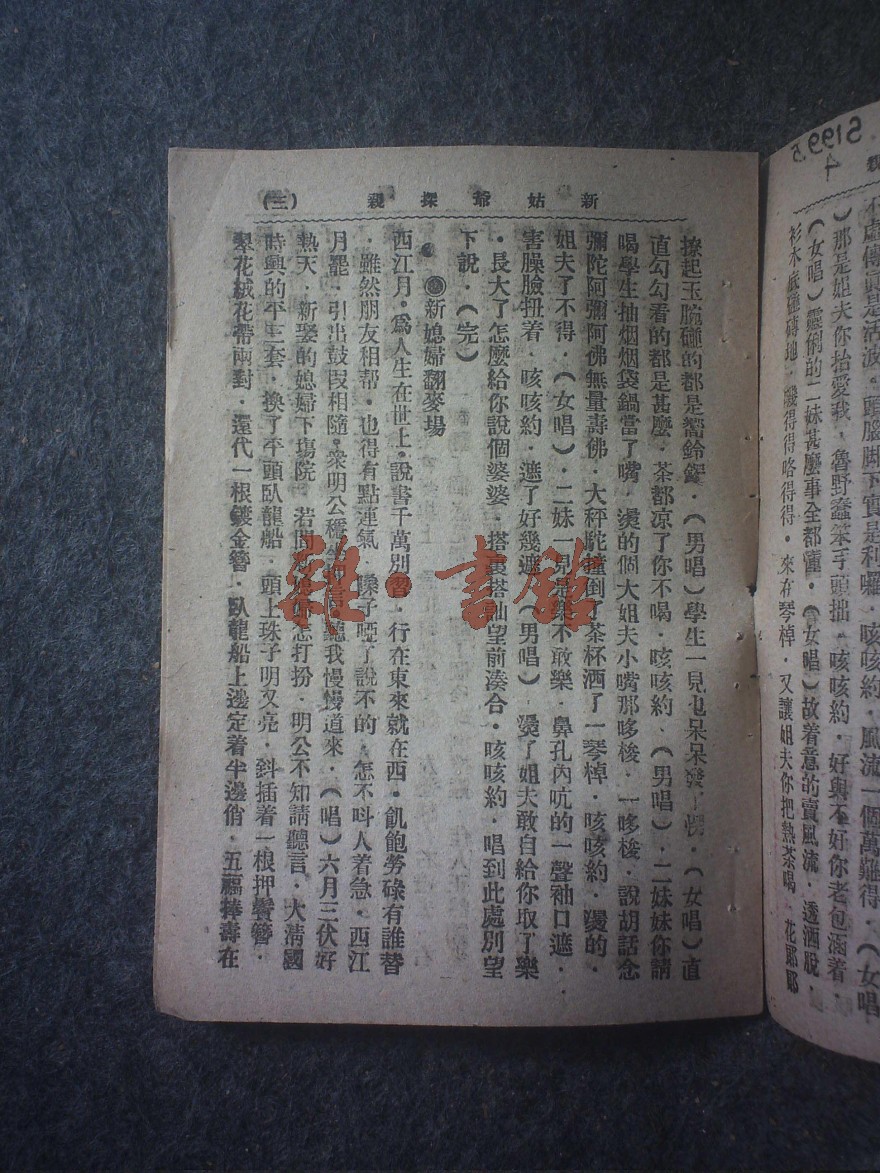 新姑爺探親 (三)
撩起玉腕碰的都是響鈴鐲．(男唱)學生一見也呆呆發了愣．(女唱)直
直勾勾看的都是甚麼．茶都凉了你不喝．咳咳約．(男唱)二妹妹你請
喝學生抽烟烟袋鍋當了嘴．燙的個大姐夫小嘴那哆梭．一哆梭．說胡話念
彌陀阿彌阿佛無量壽佛．大秤駝撞倒了茶杯洒了一琴棹．咳咳約．燙的．
姐夫了不得．(女唱)．二妹一見是樂不敢樂．鼻孔內吭的一聲袖口遮．
害臊臉扭着．咳咳約．遮了好幾遮．(男唱)燙了姐夫敢自給你取了樂
．長大了怎麼給你說個婆婆．搭裏搭訕望前湊合．咳咳約．唱到此處別望
下說．(完)
新媳婦翻麥場
西江月．爲人生在世上．說書千萬別習．行在東來就在西．飢飽勞碌有誰替
．雖然朋友相帮．也得有點連氣．嗓子啞了說不的．怎不呌人着急．西江
月罷．引出鼓段相隨．衆明公穩坐聽我慢慢道來．(唱)六月三伏好
熱天．新娶的媳婦下塲院．若問怎打扮．明公不知請聽言．大淸國
時興的平三套．換了平頭臥龍船．頭上珠子明又亮．斜插着一根押鬢簪．
翠花絨花帶兩對．還代一根鍍金簪．臥龍船上邊定着半邊俏．五福捧壽在
51995
4
不虛傳眞是活波．頭腦脚下實是利囉．咳咳約．風流一個萬難得．(女唱
)那是姐夫你抬愛我．魯野蠢笨手頭拙．咳咳約．好與不好你老包涵着．
(女唱)靈俐的二妹甚麼事全都懂．(女唱)故着意的賣風流．透洒脫．
杉木底碰磚地．得得咯得得．來在琴棹．又讓姐夫你把熱茶喝．花那那
雜·書館